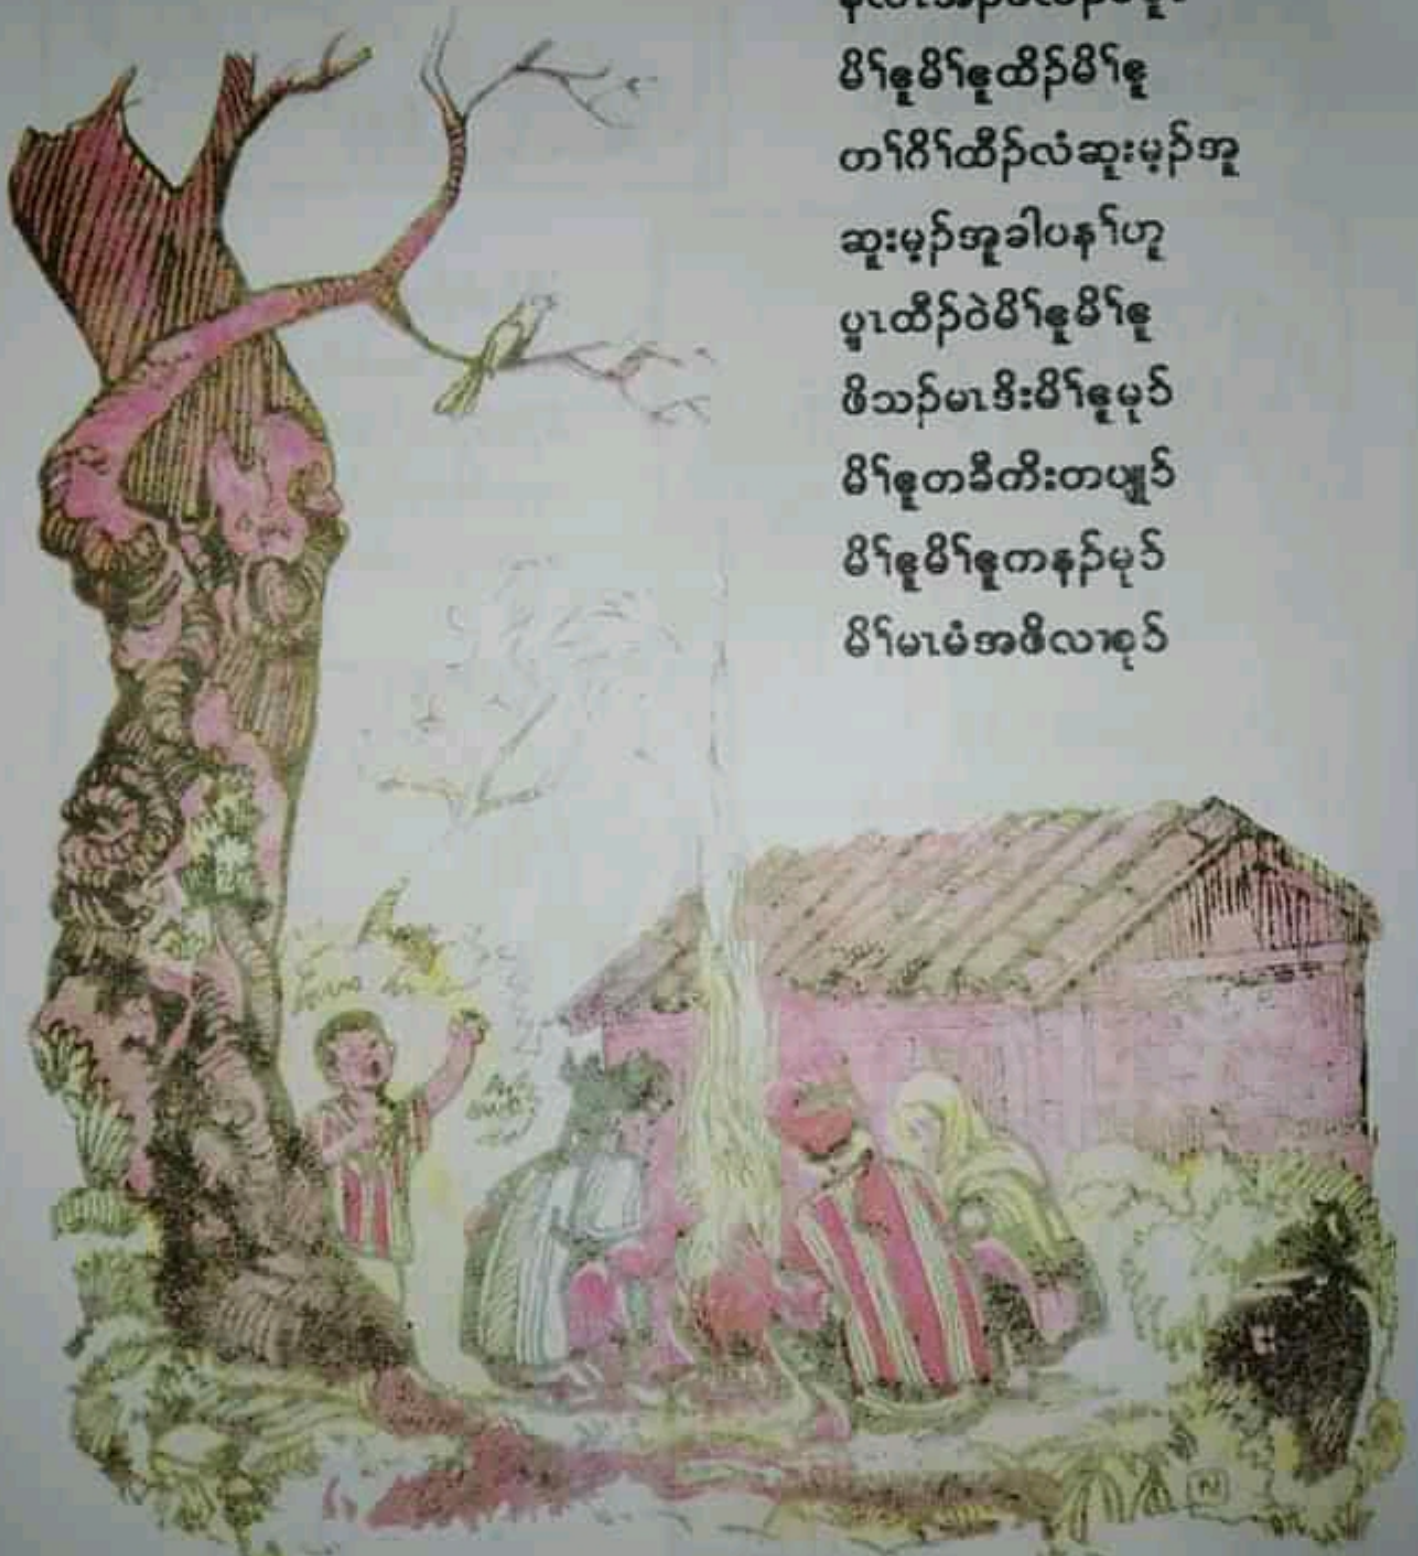 မိၢ်ဧူမိၢ်ဧူထိၣ်မိၢ်ဧူ
တၢ်ဂိၢ်ထီၣ်လံဆူးမ့ၣ်အူ
ဆူးမ့ၣ်အူခါပနၢ်ဟူ
ပှၤထီၣ်ဝဲမိၢ်ဧူမိၢ်ဧူ
ဖိသၣ်မၤဒိးမိၢ်ဧူမုၥ်
မိၢ်ဧူတခီကိးတပျုၥ်
မိၢ်ဧူမိၢ်ဧူကနၣ်မုၥ်
မိၢ်မၤမံအဖိလၢစုၥ်